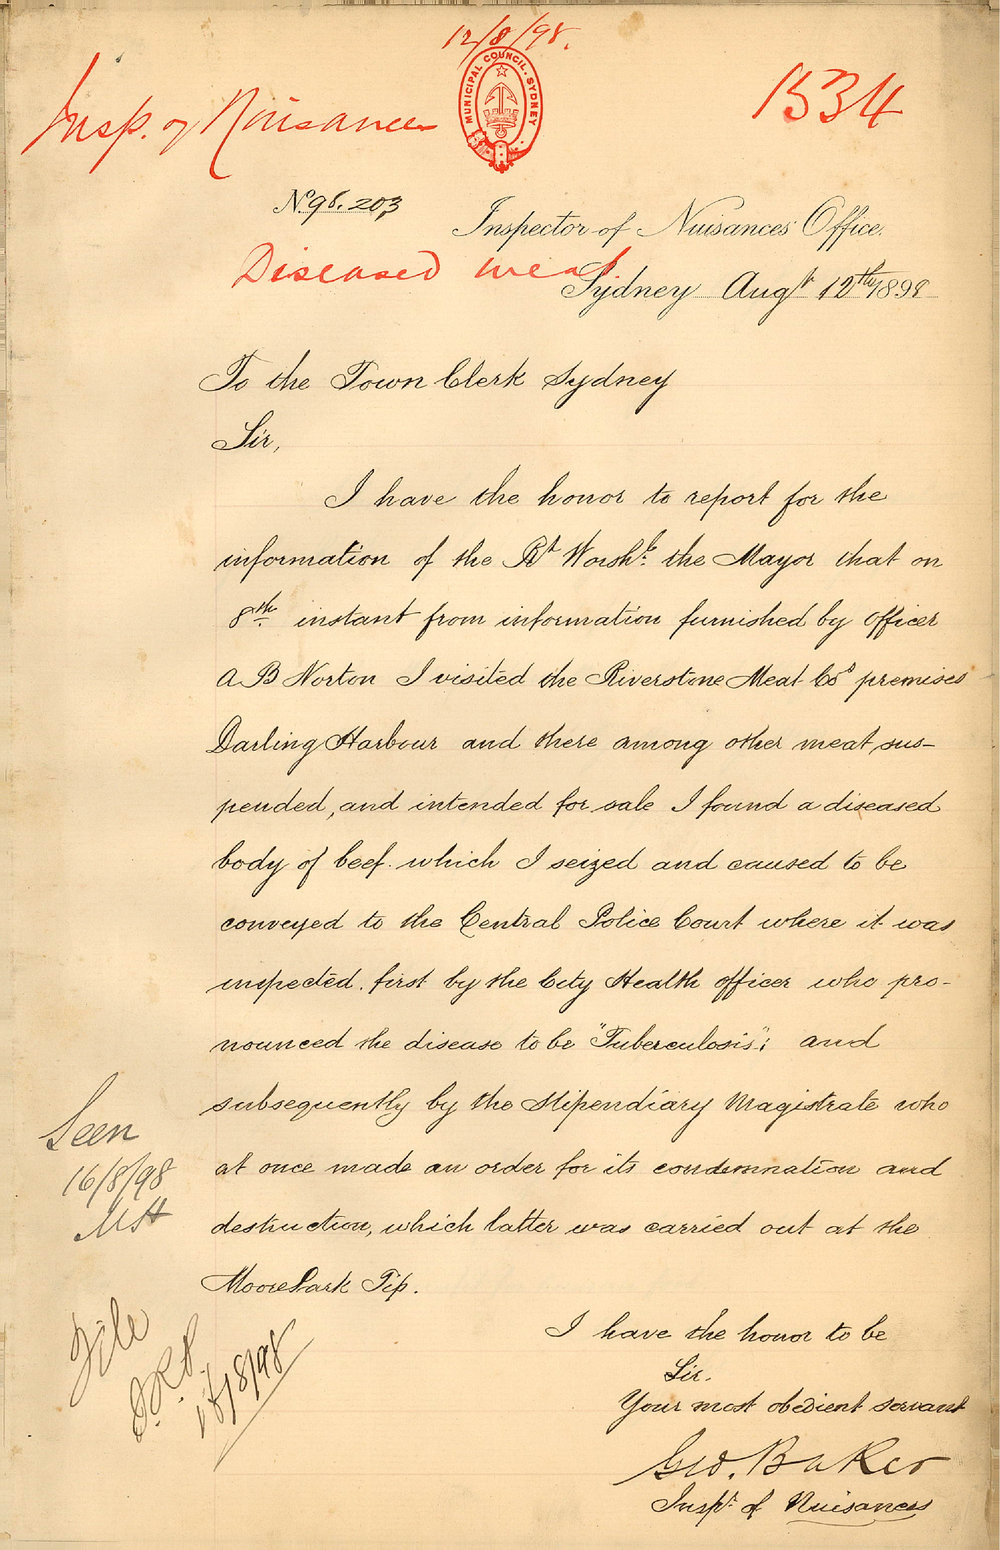 12/8/98.
Insp. of Nuisances
MUNICIPAL COUNCIL. SYDNEY
1534
No. 98.203
Inspector of Nuisances Office.
Diseased meat
Sydney Augt 12th 1898
To the Town Clerk Sydney
Sir,
I have the honor to report for the
information of the Rt Worshl. the Mayor that on
8th. instant from information furnished by officer
A B Norton I visited the Riverstone Meat Cos premises
Darling Harbour and there among other meat sus-
pended, and intended for sale I found a diseased
body of beef. which I seized and caused to be
conveyed to the Central Police Court where it was
inspected. first by the City Health officer who pro-
nounced the disease to be "Tuberculosis"; and
subsequently by the Stipendiary Magistrate who
at once made an order for its condemnation and
destruction, which latter was carried out at the
Moore Park Tip.
Seen
16/8/98
File
18/8/98
I have the honor to be
Sir.
Your most obedient servant
Geo. Baker
Inspr. of Nuisances